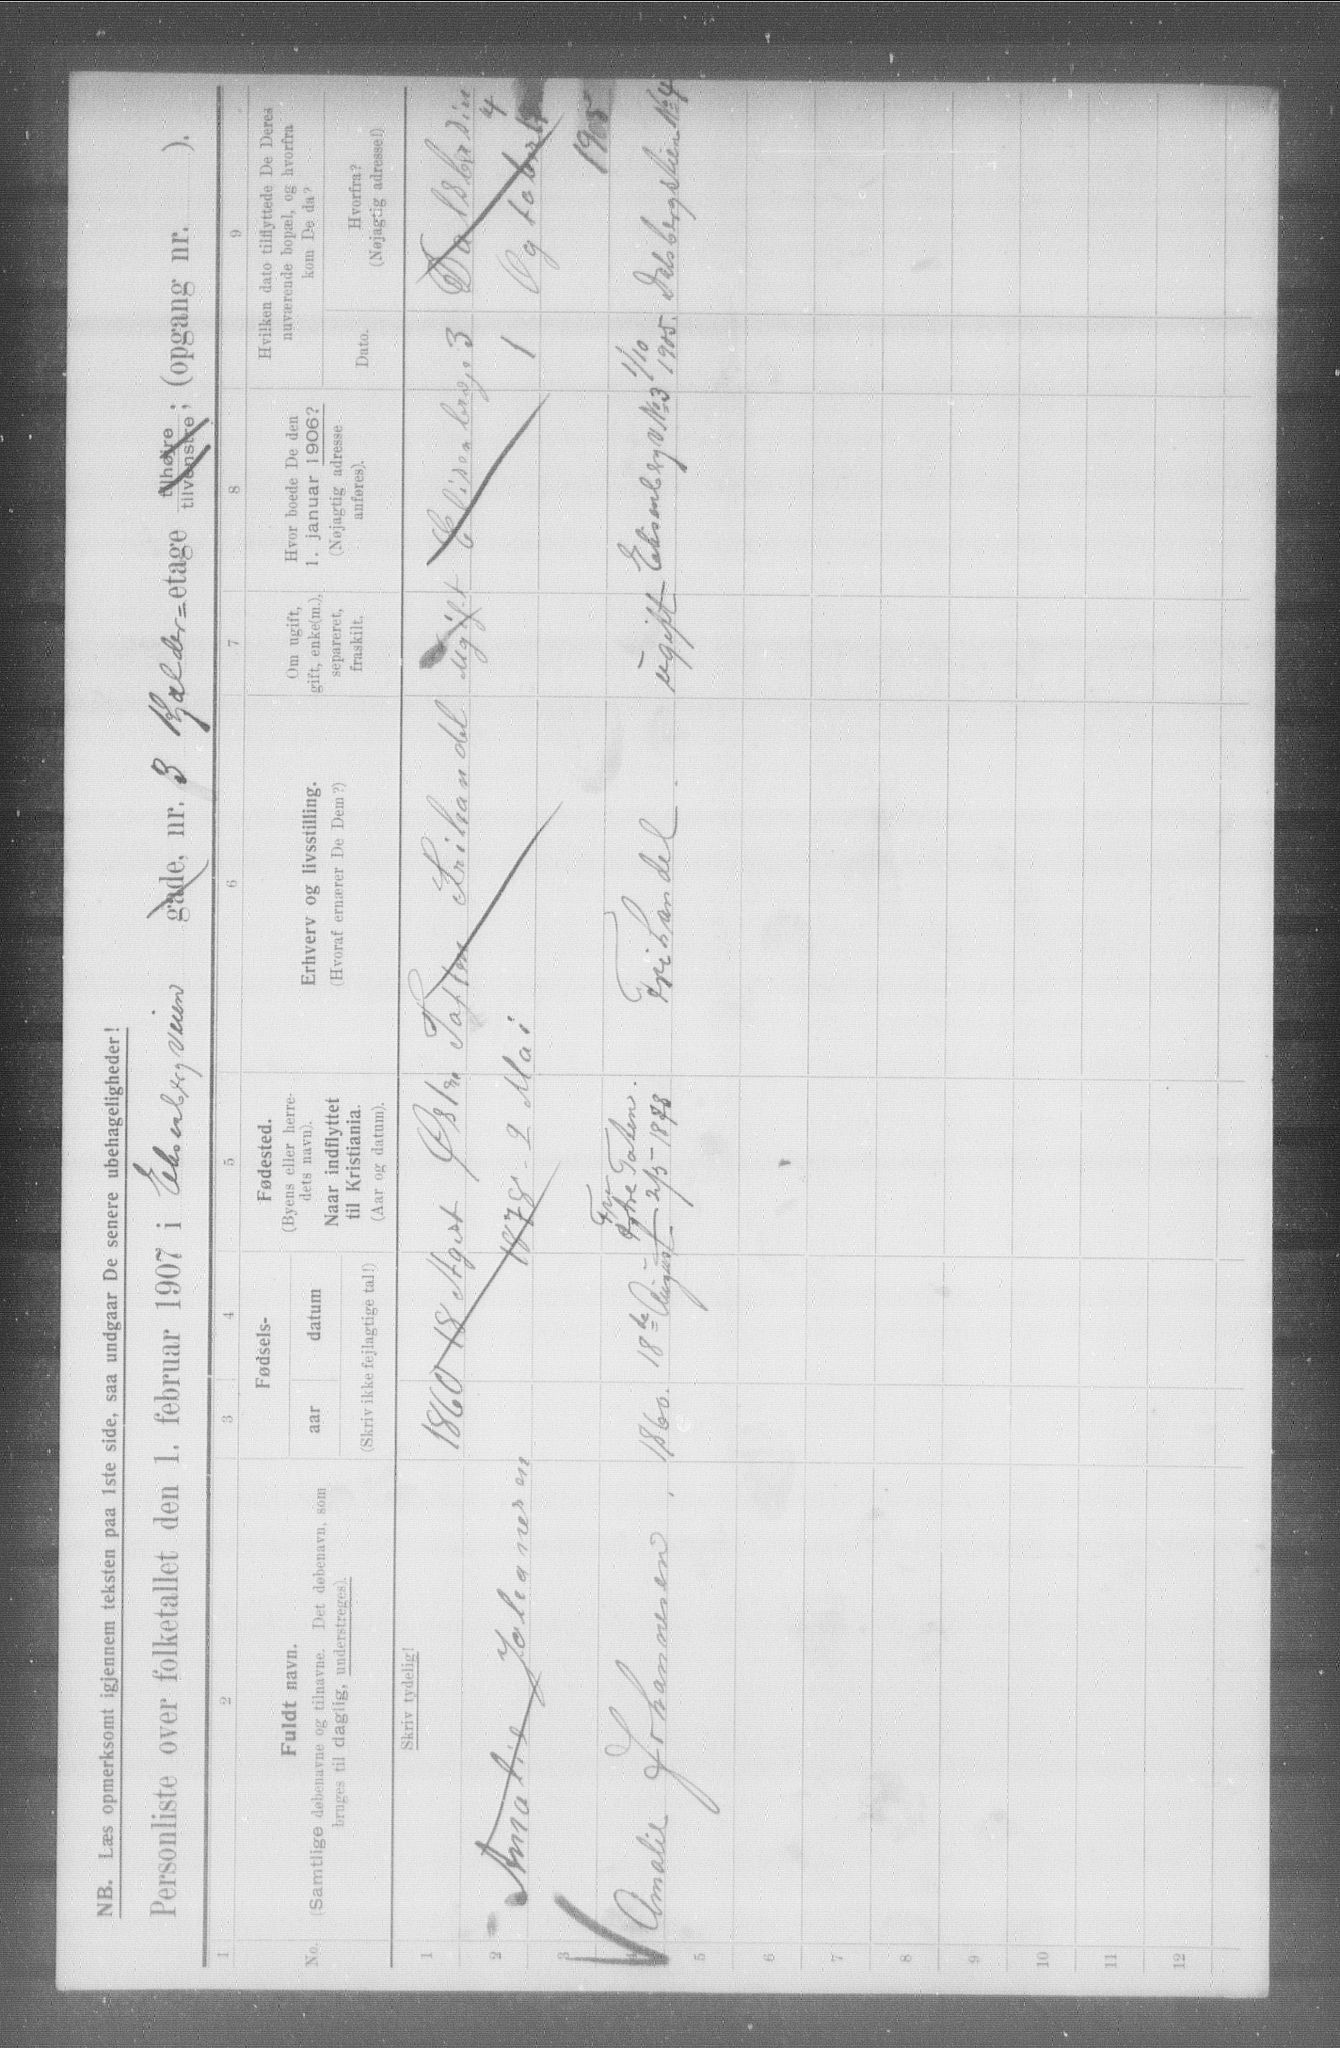 NB. Læs opmerksomt igjennem teksten paa 1ste side, saa undgaar De senere ubehageligheder!
Personliste over folketallet den 1. februar 1907 i Ekenbergveien gade, nr. 3 Kjælder=etage tilhøire tilvenstre; (opgang nr. ).
1 2 3 4 5 6 7 8 9
No.
Fuldt navn.
(Samtlige døbenavne og tilnavne. Det døbenavn, som
bruges til daglig, understreges).
Fødsels-
aar datum
(Skriv ikke fejlagtige tal!)
Fødested.
(Byens eller herre-
dets navn).
Naar indflyttet
til Kristiania.
(Aar og datum).
Erhverv og livsstilling.
(Hvoraf ernærer De Dem?)
Om ugift,
gift, enke(m.),
separeret,
fraskilt.
Hvor boede De den
1. januar 1906?
(Nøjagtig adresse
anføres).
Hvilken dato tilflyttede De Deres
nuværende bopæl, og hvorfra
kom De da?
Dato.
Hvorfra?
(Nøjagtig adresse!)
Skriv tydelig!
1 1860 18 Agust Østre Toten Frihandel ugift 3
2 Amalie Johanesen 1878 - 2 Mai 1 4
3 1905
4 Amalie Johannesen. 1860. 18de August Østre Toten. 2/5-1878 Frihandel. ugift Ekenbergv No 3 1/10 1905. Dalsbergstien No 4
5
6
7
8
9
10
11
12